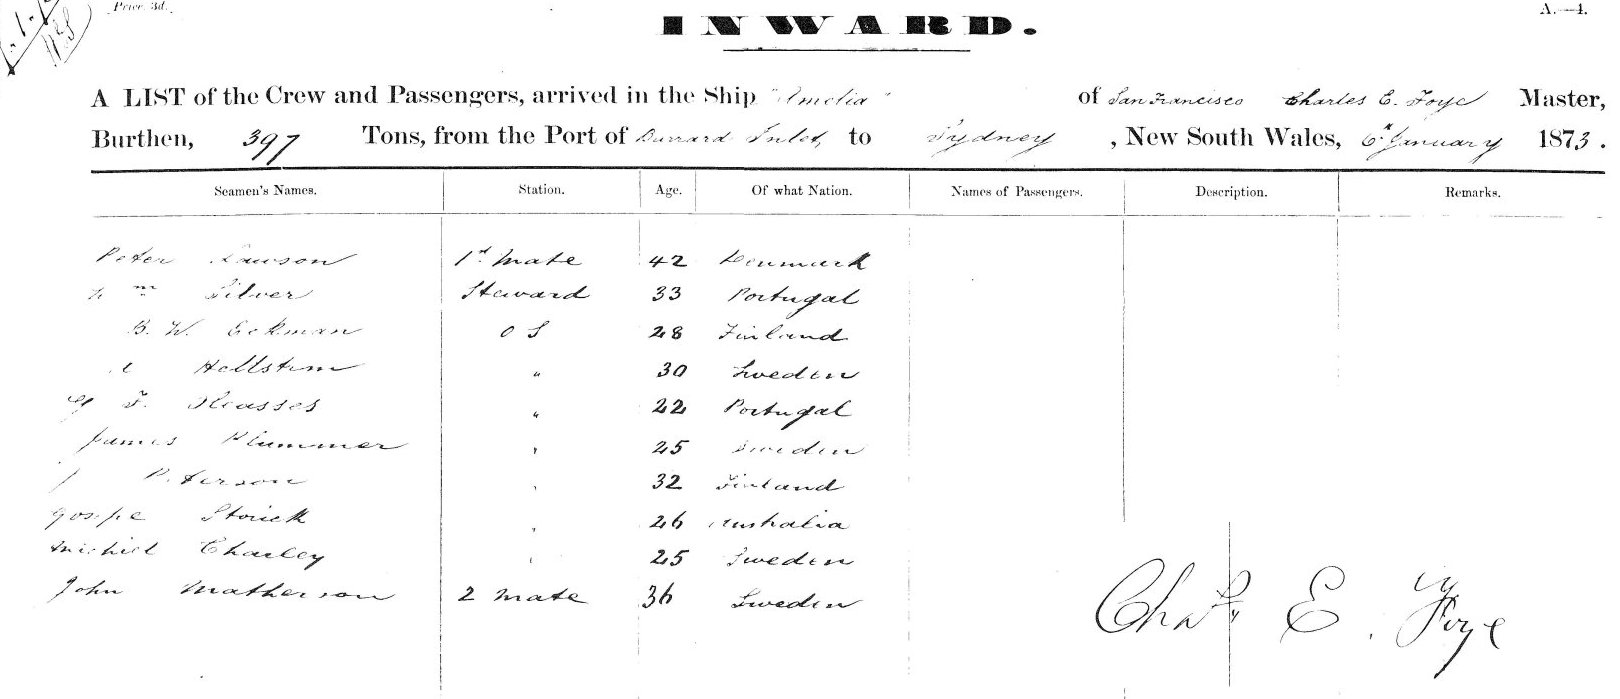 Price 3d.
A.—4.
INWARD.
A LIST of the Crew and Passengers, arrived in the Ship "Amelia" of San Francisco Charles E. Foye Master,
Burthen, 397 Tons, from the Port of Burrard Inlet, to Sydney, New South Wales, 6th January 1873.
Seamen's Names. Station. Age. Of what Nation. Names of Passengers. Description. Remarks.
Peter Lawson 1st Mate 42 Denmark
Wm Silver Steward 33 Portugal
B. W. Eckman O S 28 Finland
Hellstrm " 30 Sweden
F. " 22 Portugal
James Plummer " 25 Sweden
Peterson " 32 Finland
" 26 Australia
Charley " 25 Sweden
John Matherson 2 Mate 36 Sweden
Chas E. Foye